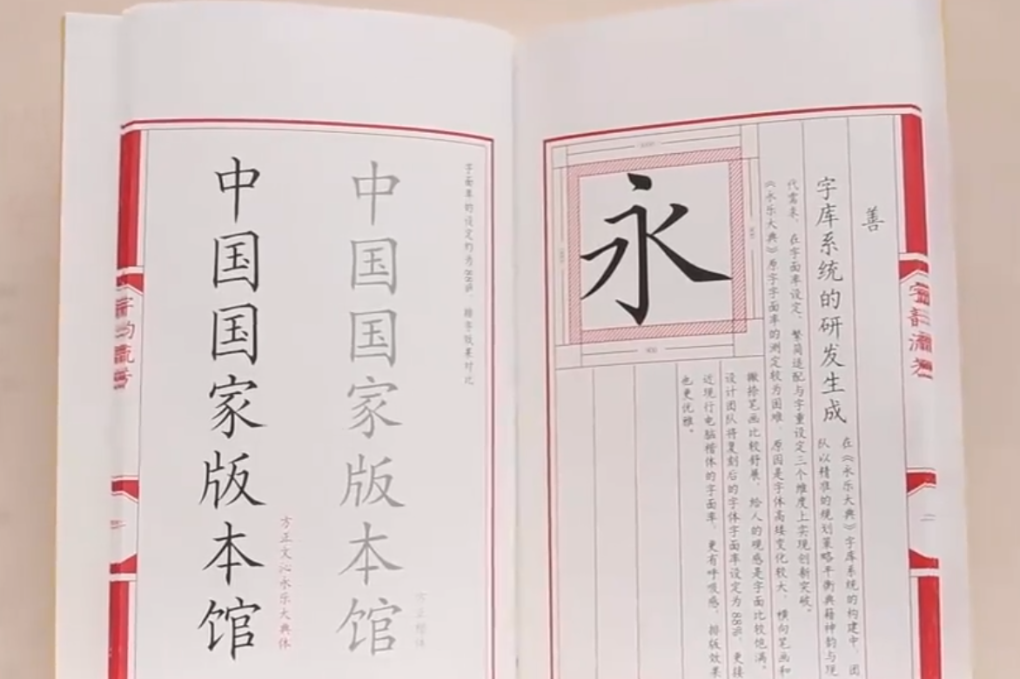 善
字库系统的研发生成
在《永乐大典》字库系统的构建中，团
队以精准的规划策略平衡典籍神韵与现
代需求，在字面率设定、繁简适配与字重设定三个维度上实现创新突破。
《永乐大典》原字字面率的测定较为困难，原因是字体高矮变化较大，横向笔画和
撇捺笔画比较舒展，给人的观感是字面比较饱满。
设计团队将复刻后的字体字面率设定为88%，更接
近现行电脑楷体的字面率，更有呼吸感，排版效果
也更优雅。
永
字面率的设定约为88%，排字效果对比
方正楷体
中国国家版本馆
方正文沁永乐大典体
中国国家版本馆